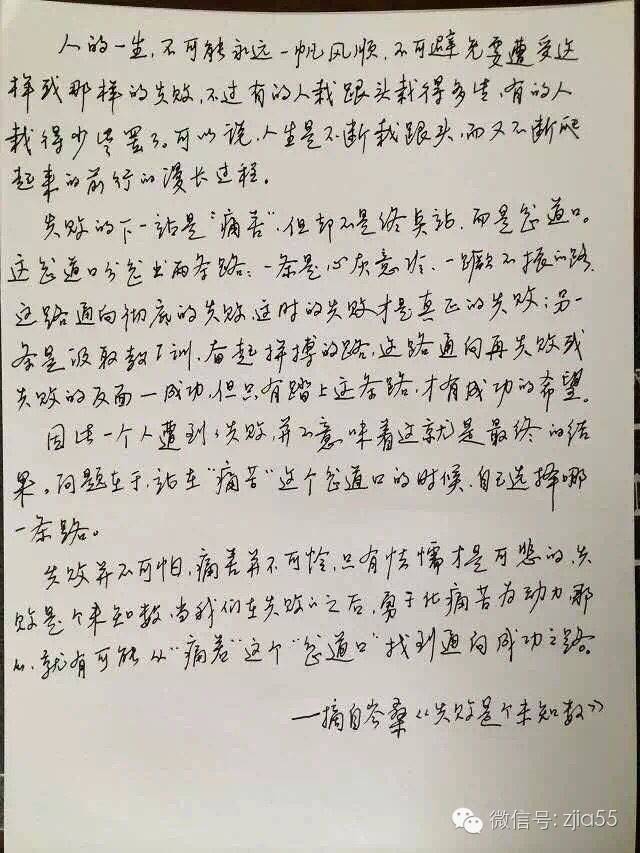 人的一生，不可能永远一帆风顺，不可避免要遭受这
样或那样的失败，不过有的人栽跟头栽得多些，有的人
栽得少些罢了。可以说，人生是不断栽跟头，而又不断爬
起来的前行的漫长过程。
失败的下一站是“痛苦”，但却不是终点站，而是岔道口。
这岔道口分岔出两条路：一条是心灰意冷、一蹶不振的路，
这路通向彻底的失败，这时的失败才是真正的失败；另一
条是汲取教训、奋起拼搏的路，这路通向再失败或
失败的反面—成功，但只有踏上这条路，才有成功的希望。
因此一个人遭到了失败，并不意味着这就是最终的结
果。问题在于，站在“痛苦”这个岔道口的时候，自己选择哪
一条路。
失败并不可怕，痛苦并不可怜，只有怯懦才是可悲的，失
败是个未知数，当我们在失败了之后，勇于化痛苦为动力，那
么，就有可能从“痛苦”这个“岔道口”找到通向成功之路。
—摘自岑桑《失败是个未知数》
微信号: zjia55